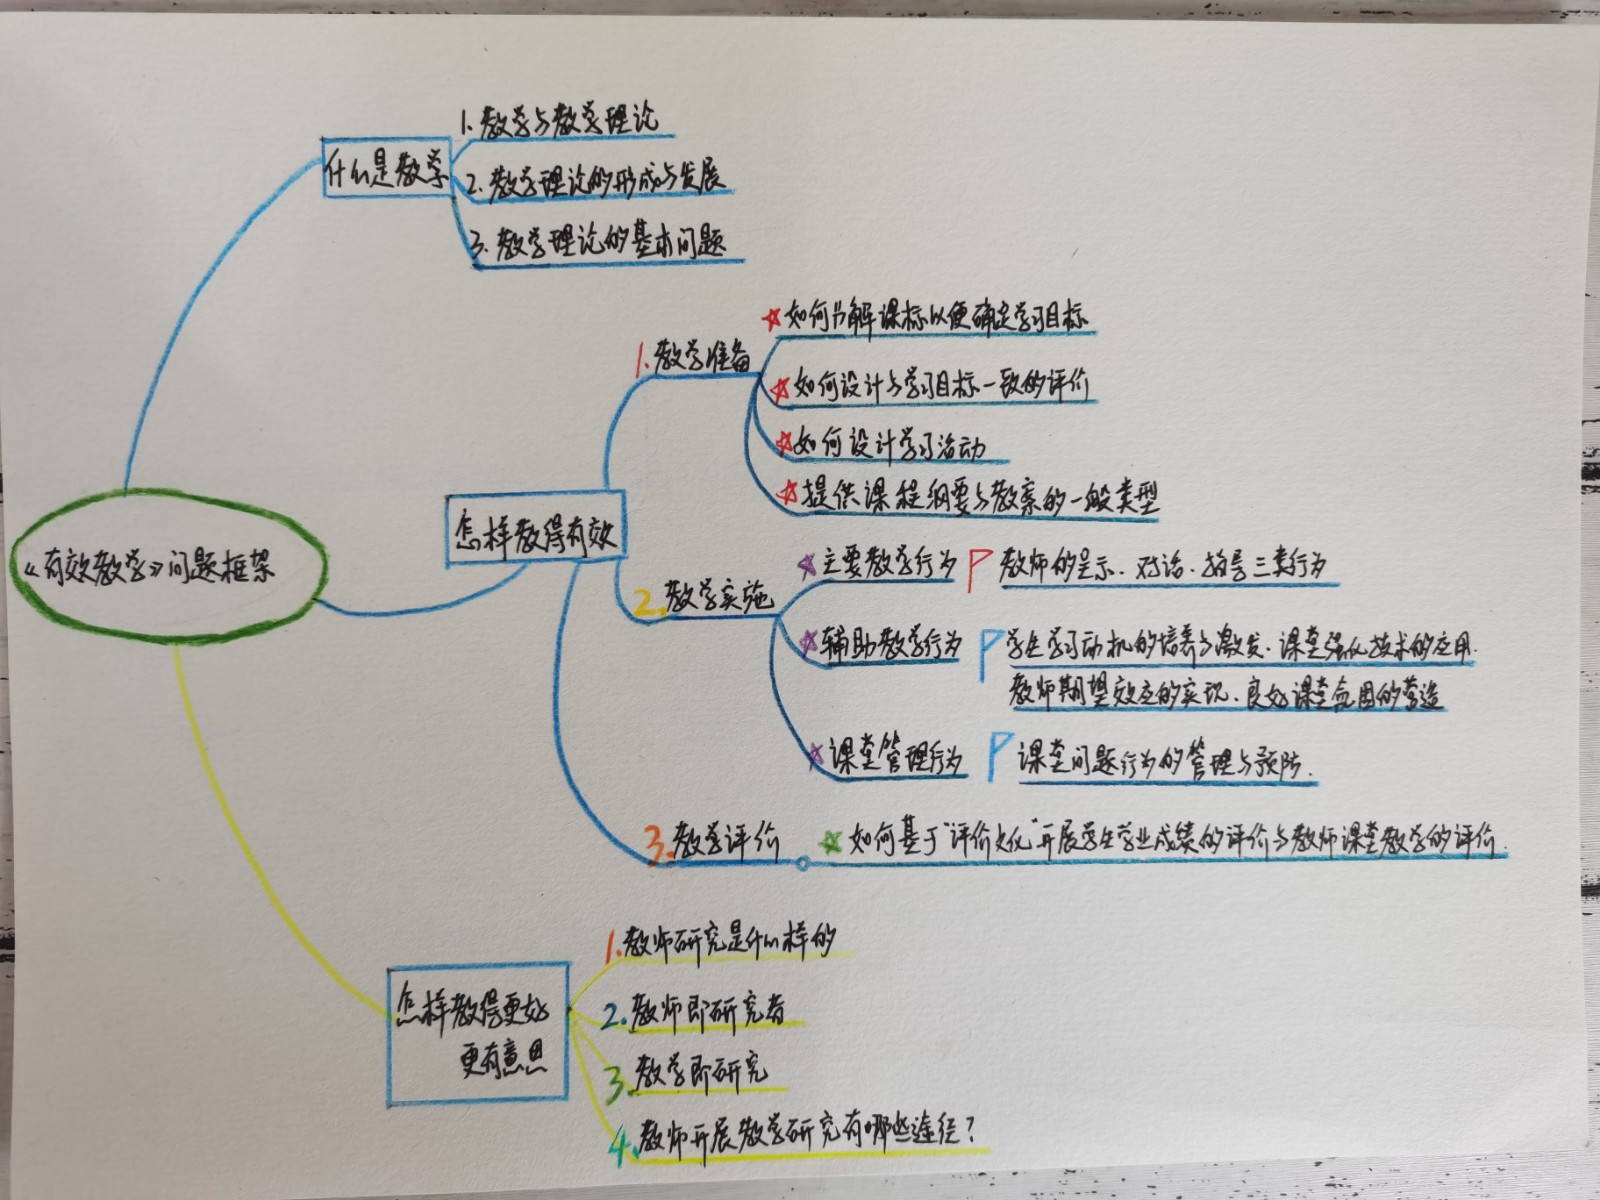 《有效教学》问题框架
什么是教学
1.教学与教学理论
2.教学理论的形成与发展
3.教学理论的基本问题
怎样教得有效
1.教学准备
如何分解课标以便确定学习目标
如何设计与学习目标一致的评价
如何设计学习活动
提供课程纲要与教案的一般类型
2.教学实施
主要教学行为
教师的呈示、对话、指导三类行为
辅助教学行为
学生学习动机的培养与激发、课堂强化技术的应用、
教师期望效应的实现、良好课堂氛围的营造
课堂管理行为
课堂问题行为的管理与预防.
3.教学评价
如何基于"评价文化"开展学生学业成绩的评价与教师课堂教学的评价.
怎样教得更好
更有意思
1.教师研究是什么样的
2.教师即研究者
3.教学即研究
4.教师开展教学研究有哪些途径?